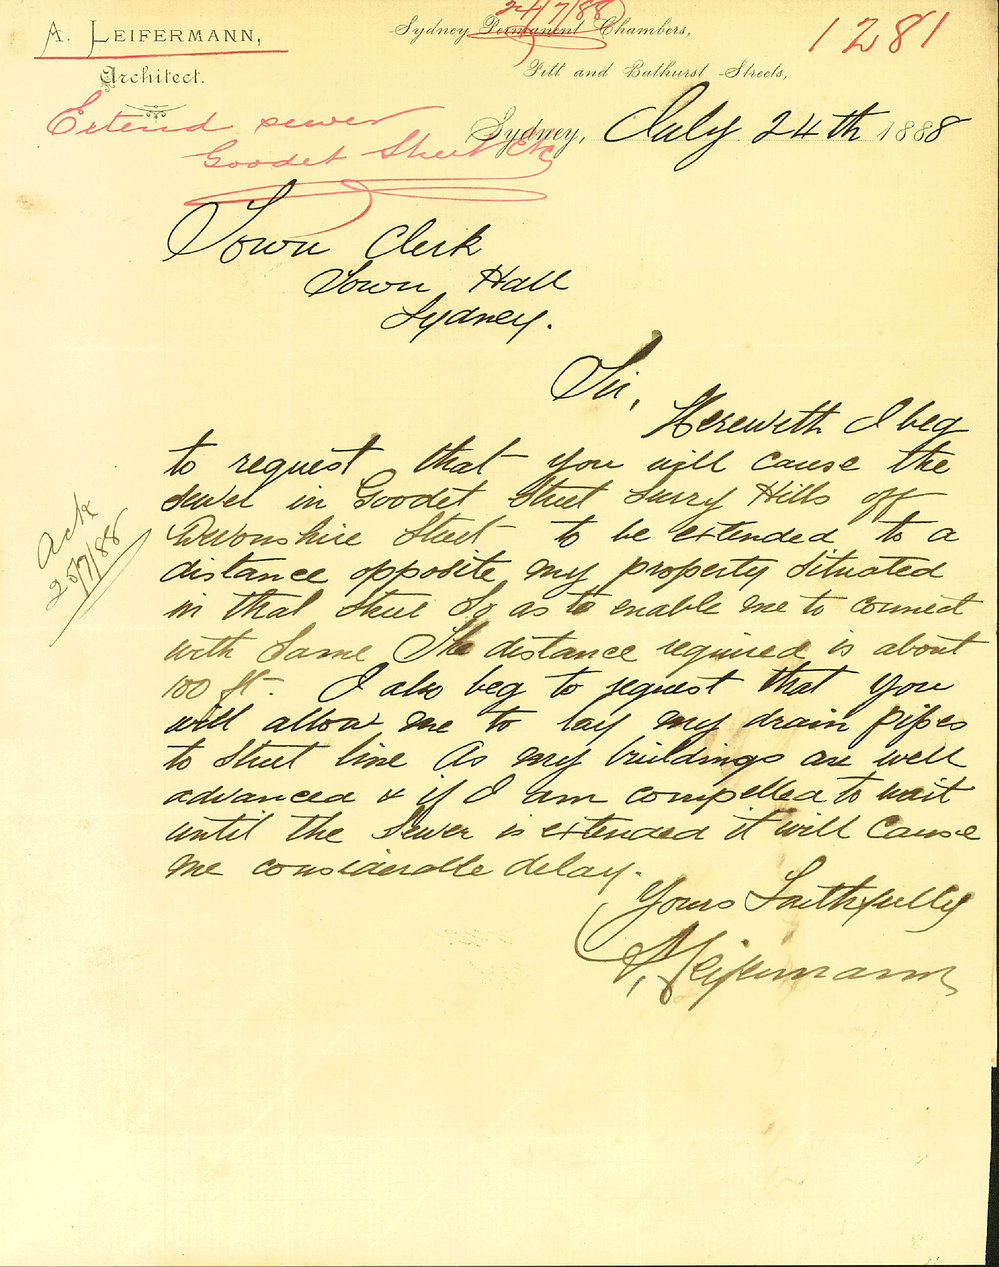 24/7/88
1281
A. LEIFERMANN,
Architect.
Sydney Permanent Chambers,
Pitt and Bathurst Streets,
Extend sewer
Goodet Street Etc
Sydney, July 24th 1888
Town Clerk
Town Hall
Sydney.
Sir,
Herewith I beg
to request that you will cause the
sewer in Goodet Street Surry Hills off
Devonshire Street to be extended to a
distance opposite my property situated
in that Street So as to enable me to connect
with Same The distance required is about
100 ft. I also beg to request that you
will allow me to lay my drain pipes
to Street line As my buildings are well
advanced & if I am compelled to wait
until the Sewer is extended it will Cause
me considerable delay.
Yours Faithfully
A. Leifermann
Ack
25/7/88